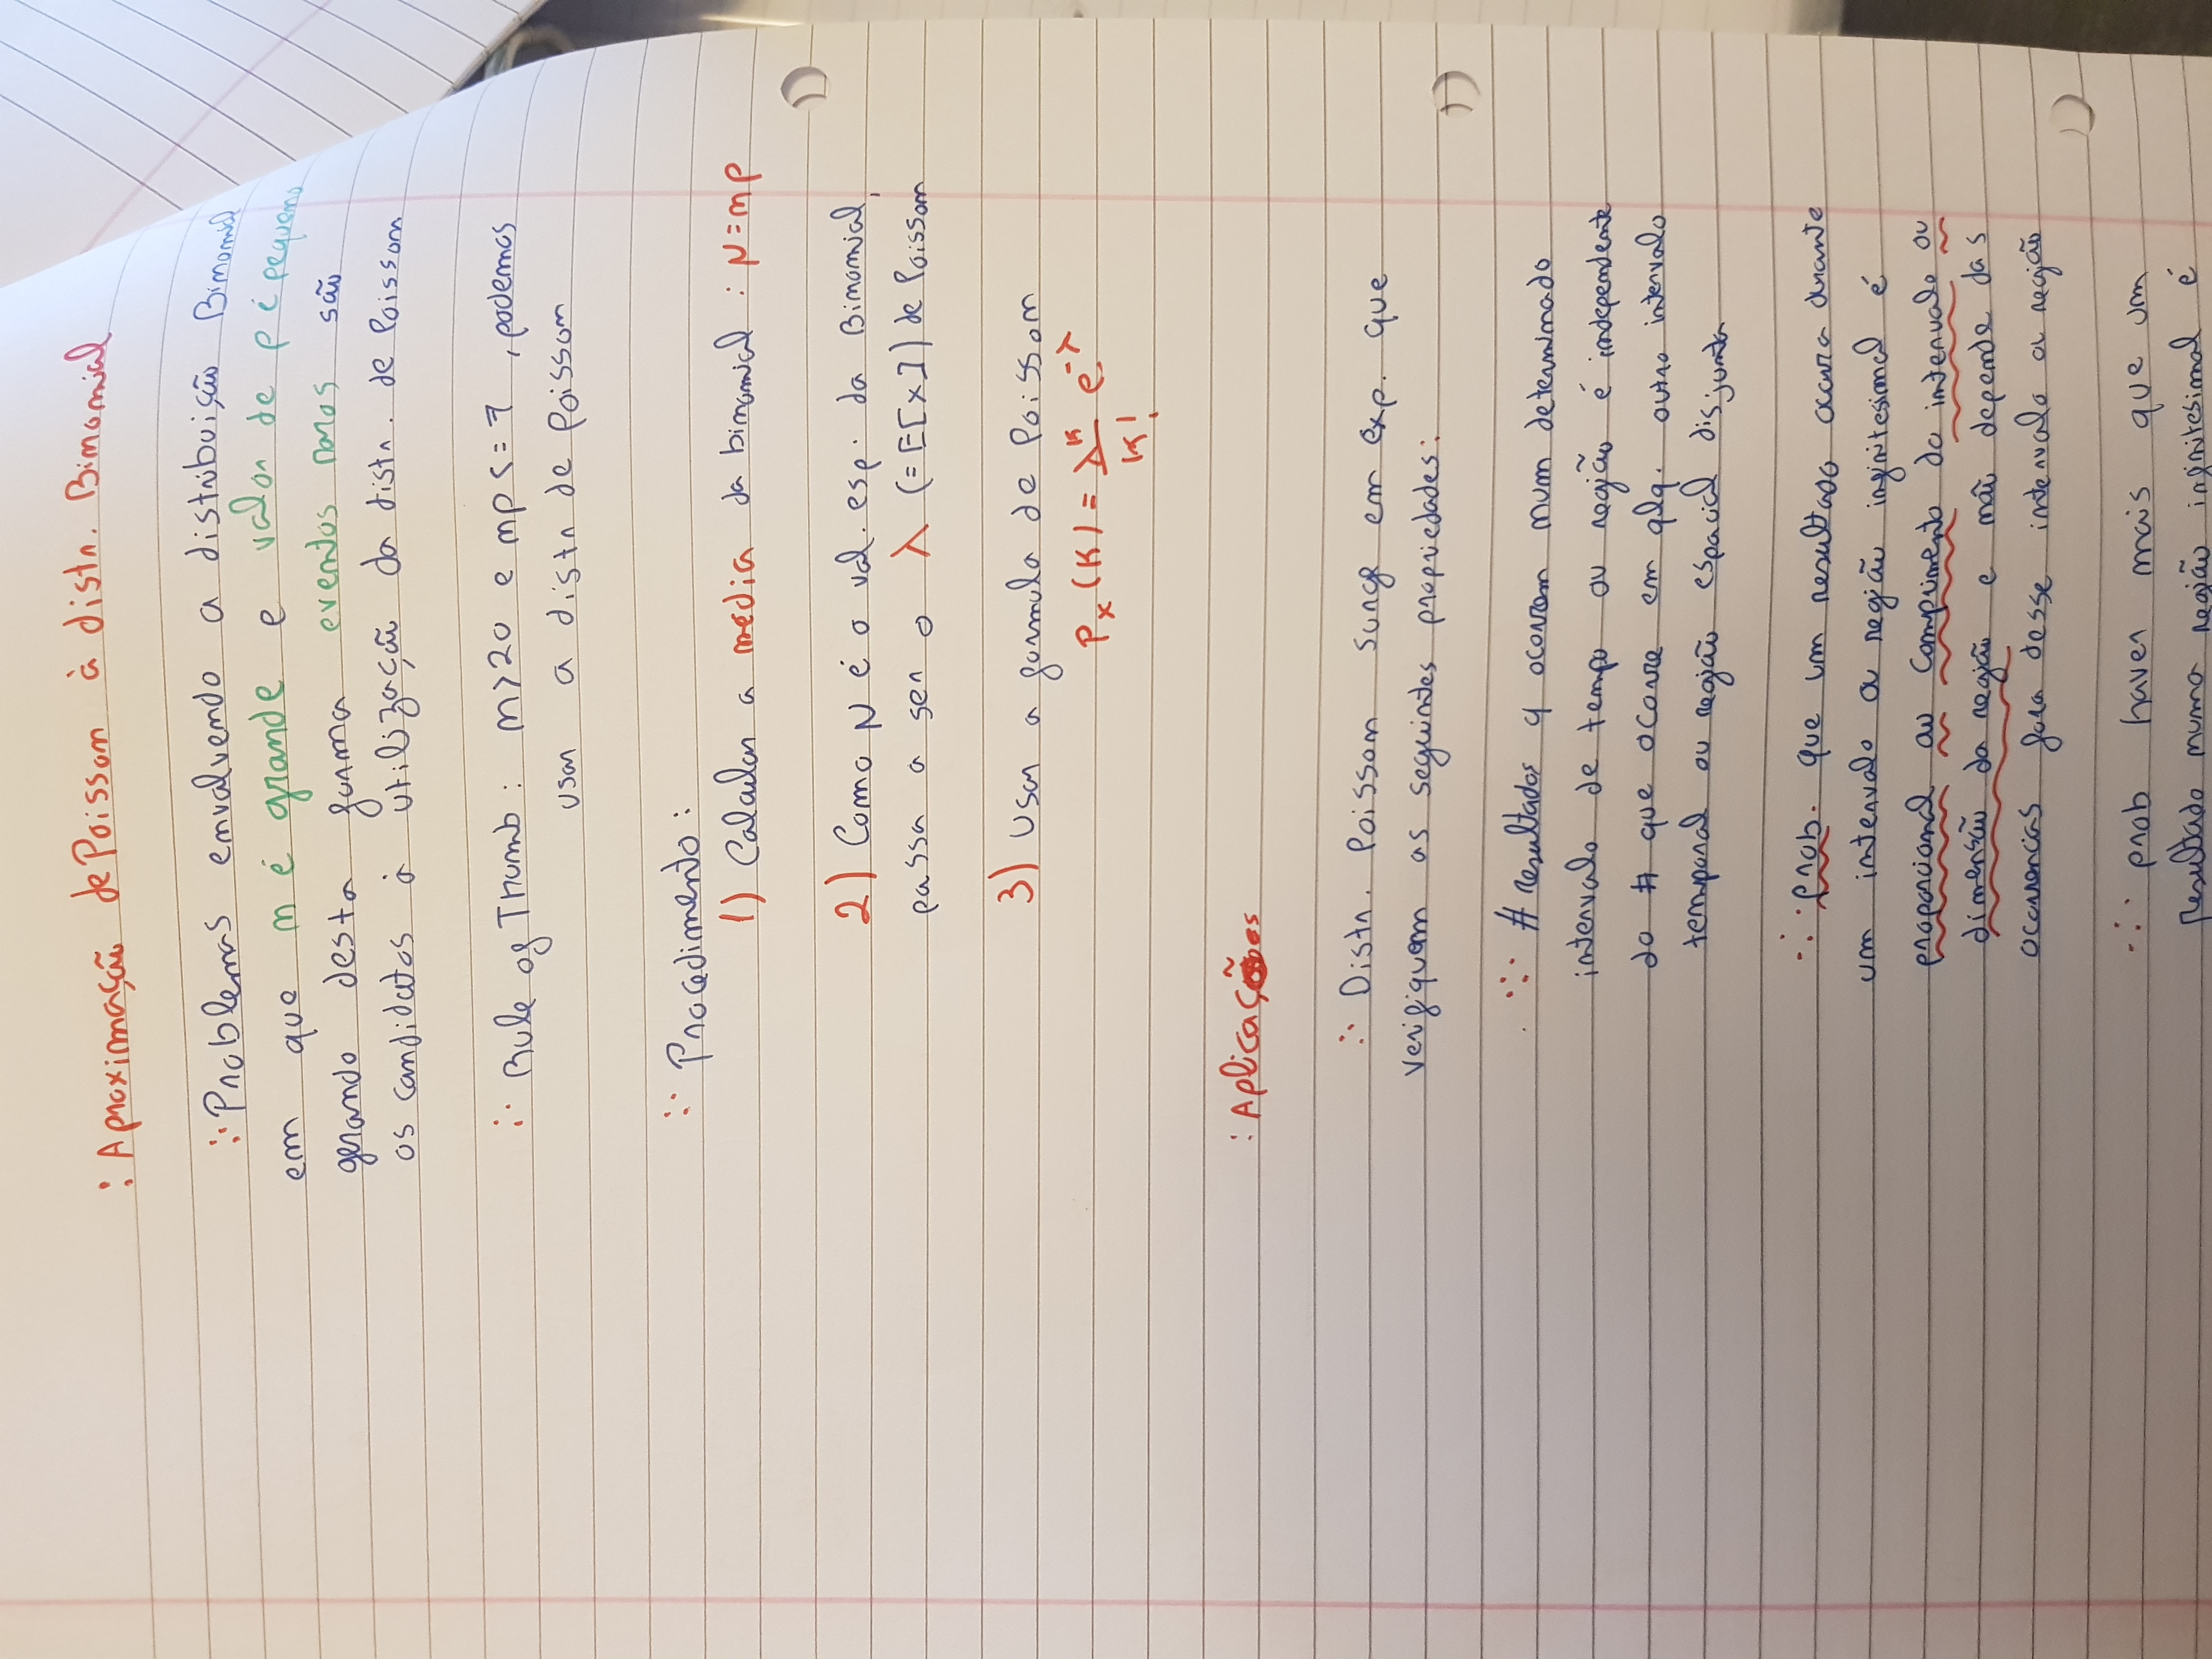 : Aproximação de Poisson à distr. Binomial
∴ Problemas envolvendo a distribuição Binomial
em que n é grande e valor de p é pequeno
gerando desta forma eventos raros são
os candidatos à utilização da distr. de Poisson
∴ Rule of Thumb : n>20 e np <= 7 , podemos
usar a distr de Poisson
∴ Procedimento :
1) Calcular a média da binomial : μ=np
2) Como μ é o val. esp. da Binomial,
passa a ser o λ (=E[X]) de Poisson
3) Usar a formula de Poisson
Px (K) = λ^K/K! e^-λ
: Aplicações
∴ Distr. Poisson surge em exp. que
verifiquem as seguintes propriedades:
∴ # resultados q ocorrem num determinado
intervalo de tempo ou região é independente
do # que ocorre em qlq. outro intervalo
temporal ou região espacial disjunta
∴ prob. que um resultado ocorra durante
um intervalo ou região infinitesimal é
proporcional ao comprimento do intervalo ou
dimensão da região e não depende das
ocorrencias fora desse intervalo ou região
∴ prob haver mais que um
resultado numa região infinitesimal é